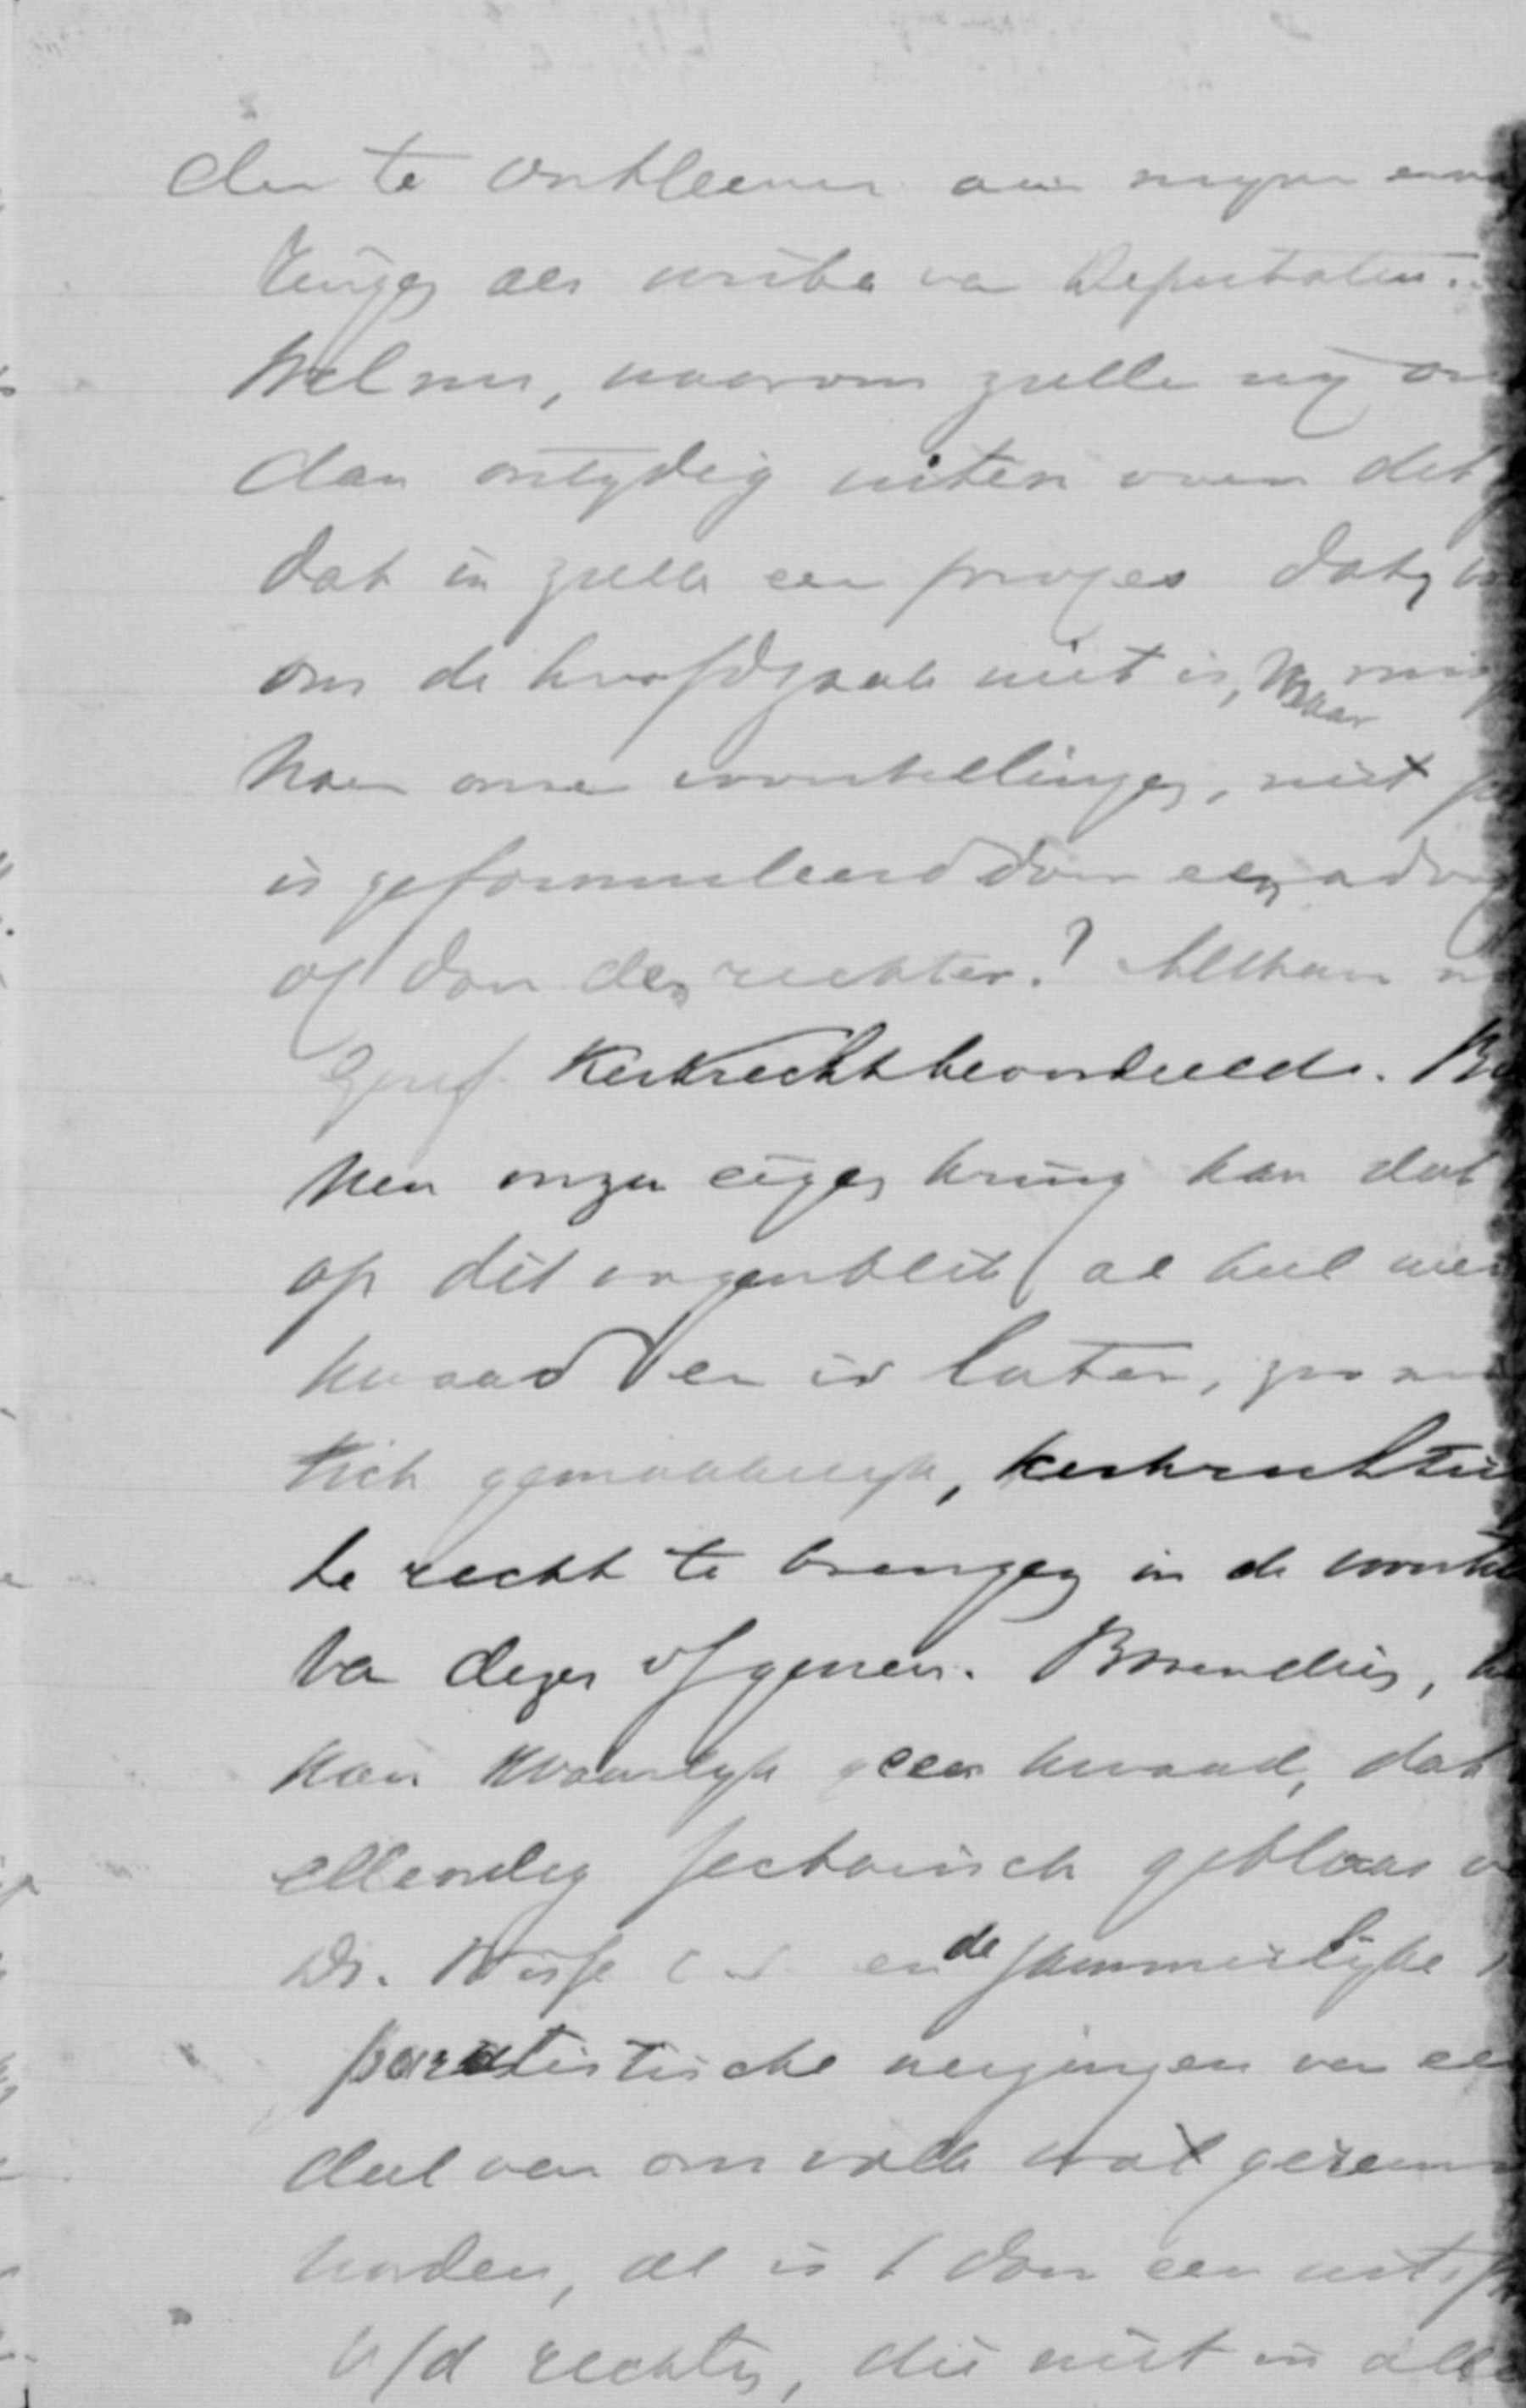 den te ontleenen aan mijne erva
ringen als scriba van Deputaten.
Wel nu, waarom zullen wij ons
dan ontijdig uiten over dit
dat in zulk een proces dat,
om de hoofdzaak niet is, Maar
naar onze voorstellingen, niet
is geformuleerd door een advo
of door den rechter? Althans
Geref. Kerkrecht beoordeeld. Bi
nen onzen eigen kring kan dat
op dit oogenblik al heel wei
kwaad en is later, zoo no
dich gemakkelijk, kerkrechtelij
te recht te brengen in de voorstel
van dezen of genen. Bovendien, he
kan waarlijk geen kwaad, dat
ellendig sectarisch geblaas v
Ds. Wisse c.s. en de jammerlijke
paratistische neigingen van een
deel van ons volk wat gerem
worden, al is 't door een uitsp
v/d rechter, die niet in alle